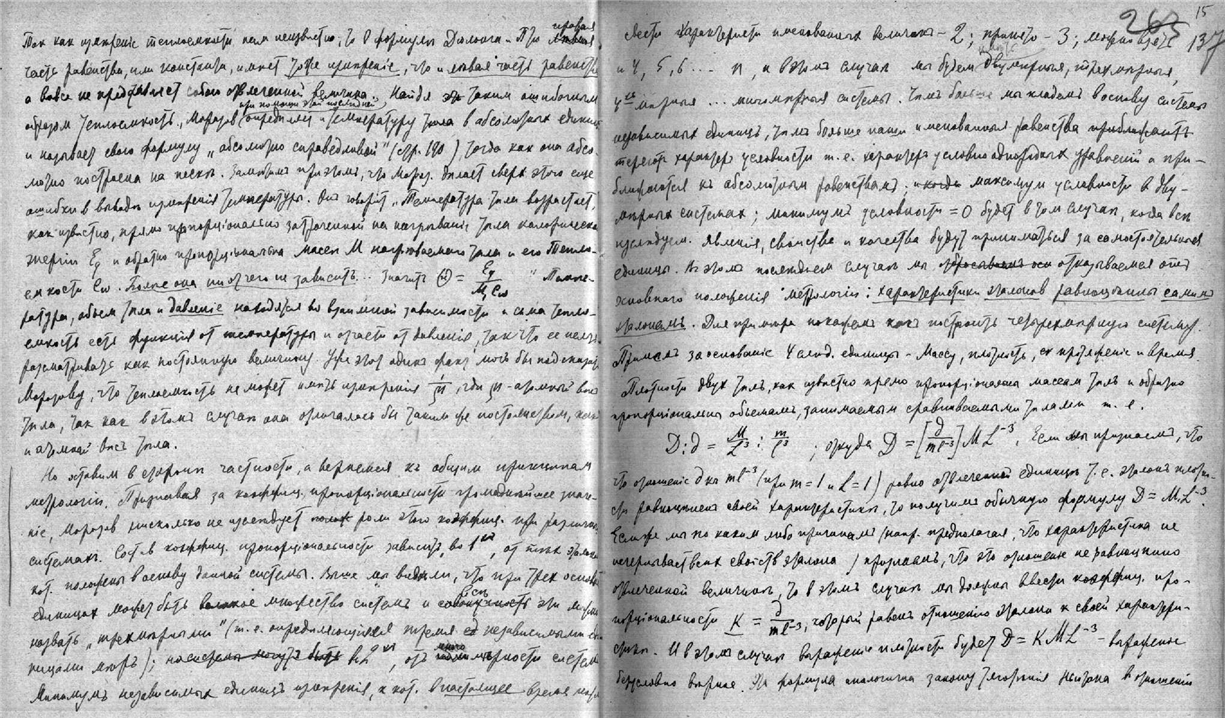 Так как измѣреніе теплоемкости нам неизвѣстно, то в формулы Дюлонга - Пти правая
часть равенства, или константа, имѣет тоже измѣреніе, что и лѣвая часть равенства
а вовсе не представляет собою отвлеченной величины. Найдя таким ошибочным
при помощи этой послѣдней
образом теплоемкость, Морозов опредѣляет и температуру тѣла в абсолютных единиц
и называет свою формулу „абсолютно справедливой" (стр. 180) тогда как она абсо-
лютно построена на песке. Замѣтим при этом, что Мороз. дѣлает сверх этого еще
ошибки в выводѣ измѣренія температуры. Он говорит „Температура тѣла возрастает,
как извѣстно, прямо пропорціонально затраченной на нагрѣваніе тѣла калорическо
энергіи Eq и обратно пропорціональна массе M нагрѣваемого тѣла и его тепло-
емкости Cω. Болѣе она ни от чего не зависит... значит Θ = Eq / M Cω " Темпе-
ратура, объем тѣла и давленіе находятся во взаимной зависимости и сама тепло-
емкость есть функція от температуры и отчасти от давленія, так что ее нельзя
разсматривать как постоянную величину. Уже этот один факт мог бы подсказать
Морозову, что теплоемкость не может имѣть измѣренія 1/m, где m - атомный вѣс
тѣла, так как в этом случаѣ она отличалась бы таким же постоянством, как
и атомной вѣс тѣла.
Но оставим в сторонѣ частности, а вернемся къ общим принципам
метрологіи. Признавая за коэффиц. пропорціональности громаднѣйшее знач-
ніе, Морозов нисколько не изслѣдует роли этого коэффиц. при различн
системах. Состав коэффиц. пропорціональности зависит, во 1ых, от тѣх эталон
кот. положены в основу данной системы. Выше мы видѣли, что при трех основн
единицах может быть множество систем и совокупность эти можно
назвать „трехмѣрными" (т. е. опредѣляющіяся тремя независимыми еди
ницами мѣръ); во 2ых, от мѣрности системы
Минимумъ независимых единиц измѣренія, к кот. в настоящее время можно
15
263
137
свести характеристи именованных величин - 2; принято - 3; можно взять
и 4, 5, 6 ... n, и в этом случаѣ мы будем имѣть двумѣрныя, трехмѣрныя,
4ех мѣрныя ... многомѣрныя системы. Чѣмъ больше мы кладем в основу системы
независимых единицъ, тѣмъ больше наши именованныя равенства приближаютъ
теряютъ характер условности т. е. характеръ условно однородных уравненій и при-
ближаются къ абсолютным равенствамъ; максимум условности в дву-
мѣрных системах; минимумъ условности = 0 будет в том случаѣ, когда всѣ
изслѣдуем. явленія, свойства и качества будут приниматься за самостоятельныя
единицы. Въ этом послѣднем случаѣ мы отказываемся отъ
основного положенія метрологіи: характеристики эталонов равноцѣнны самим
эталонамъ. Для примѣра покажем какъ построить четырехмѣрную систему.
Примем за основаніе 4 единицы - Массу, плотность, протяженіе и время.
Плотности двух тѣлъ, как извѣстно прямо пропорціональны массам тѣлъ и обратно
пропорціональны объемамъ, занимаемым сравниваемыми тѣлами т. е.
D : d = M/L³ : m/l³ ; откуда D = [d / ml⁻³] ML⁻³. Если мы признаемъ, что
что отношеніе d къ ml⁻³ (при m = 1 и l = 1) равно отвлеченной единицы т. е. эталон плотно-
сти равноцѣнен своей характеристики, то получим обычную формулу D = ML⁻³
Если же мы по каким либо причинам (напр. предполагая, что характеристика не
исчерпывает всѣх свойствъ эталона) признаем, что это отношеніе не равноцѣнно
отвлеченной величинѣ, то в этом случаѣ мы должны ввести коэффиц. про-
порціональности K = d / ml⁻³, который равен отношенію эталона к своей характери-
стикѣ. И в этом случаѣ выраженіе плотности будет D = KML⁻³ - выраженіе
безусловно вѣрное. Эта формула аналогична закону тяготѣнія Ньютона в отношеніи